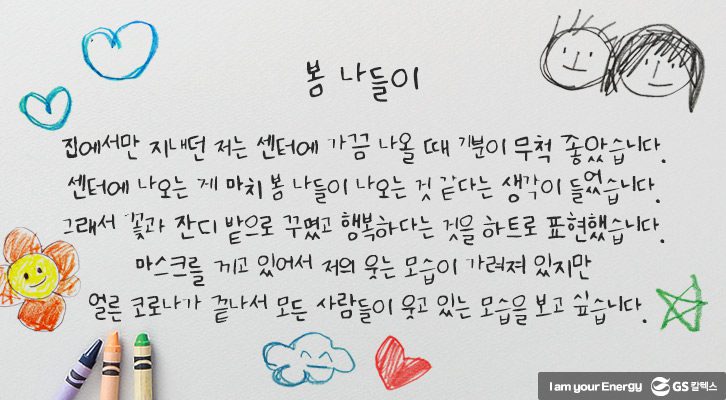 봄 나들이
집에서만 지내던 저는 센터에 가끔 나올 때 기분이 무척 좋았습니다.
센터에 나오는 게 마치 봄 나들이 나오는 것 같다는 생각이 들었습니다.
그래서 꽃과 잔디 밭으로 꾸몄고 행복하다는 것을 하트로 표현했습니다.
마스크를 끼고 있어서 저의 웃는 모습이 가려져 있지만
얼른 코로나가 끝나서 모든 사람들이 웃고 있는 모습을 보고 싶습니다.
I am your Energy GS칼텍스